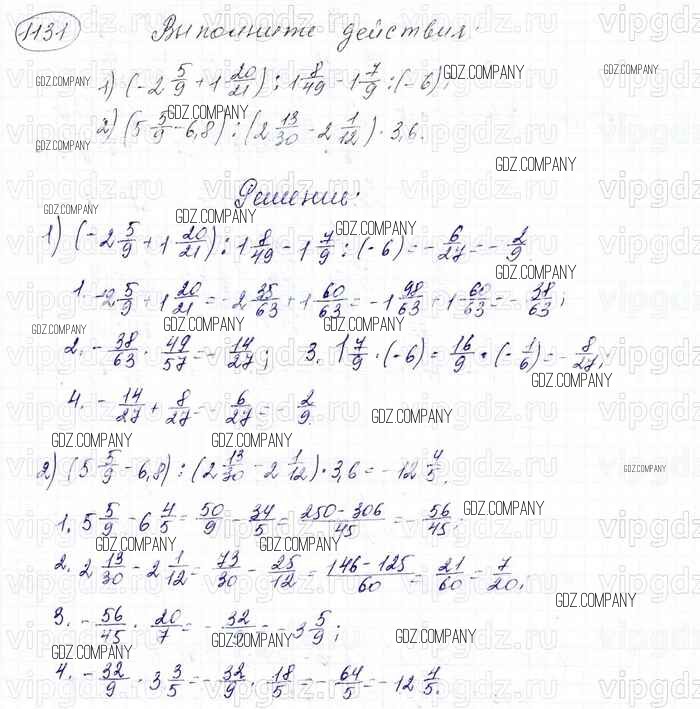 1131 Выполните действия:
1) (-2 5/9 + 1 20/21) : 1 8/49 - 1 7/9 : (-6);
2) (5 5/9 - 6,8) : (2 13/30 - 2 1/12) · 3,6.
Решение:
1) (-2 5/9 + 1 20/21) : 1 8/49 - 1 7/9 : (-6) = - 6/27 = - 2/9
1. -2 5/9 + 1 20/21 = -2 35/63 + 1 60/63 = -1 98/63 + 1 60/63 = - 38/63;
2. - 38/63 · 49/57 = - 14/27; 3. 1 7/9 · (-6) = 16/9 · (- 1/6) = - 8/27;
4. - 14/27 + 8/27 = - 6/27 = - 2/9.
2) (5 5/9 - 6,8) : (2 13/30 - 2 1/12) · 3,6 = -12 4/5.
1. 5 5/9 - 6 4/5 = 50/9 - 34/5 = 250-306/45 = - 56/45;
2. 2 13/30 - 2 1/12 = 73/30 - 25/12 = 146-125/60 = 21/60 = 7/20;
3. - 56/45 · 20/7 = - 32/9 = -3 5/9;
4. - 32/9 · 3 3/5 = - 32/9 · 18/5 = - 64/5 = -12 4/5.
GDZ.COMPANY
vipgdz.ru